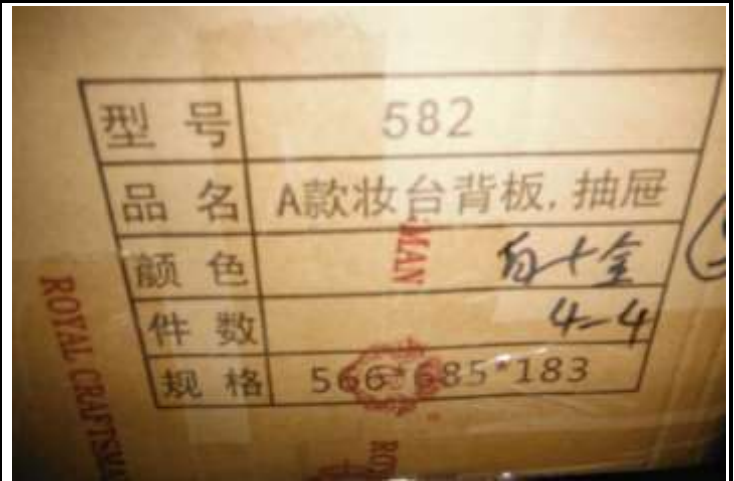 型号 582
品名 A款妆台背板,抽屉
颜色 白+金
件数 4-4
规格 566*685*183
MAN
ROYAL CRAFTSMA
ROY